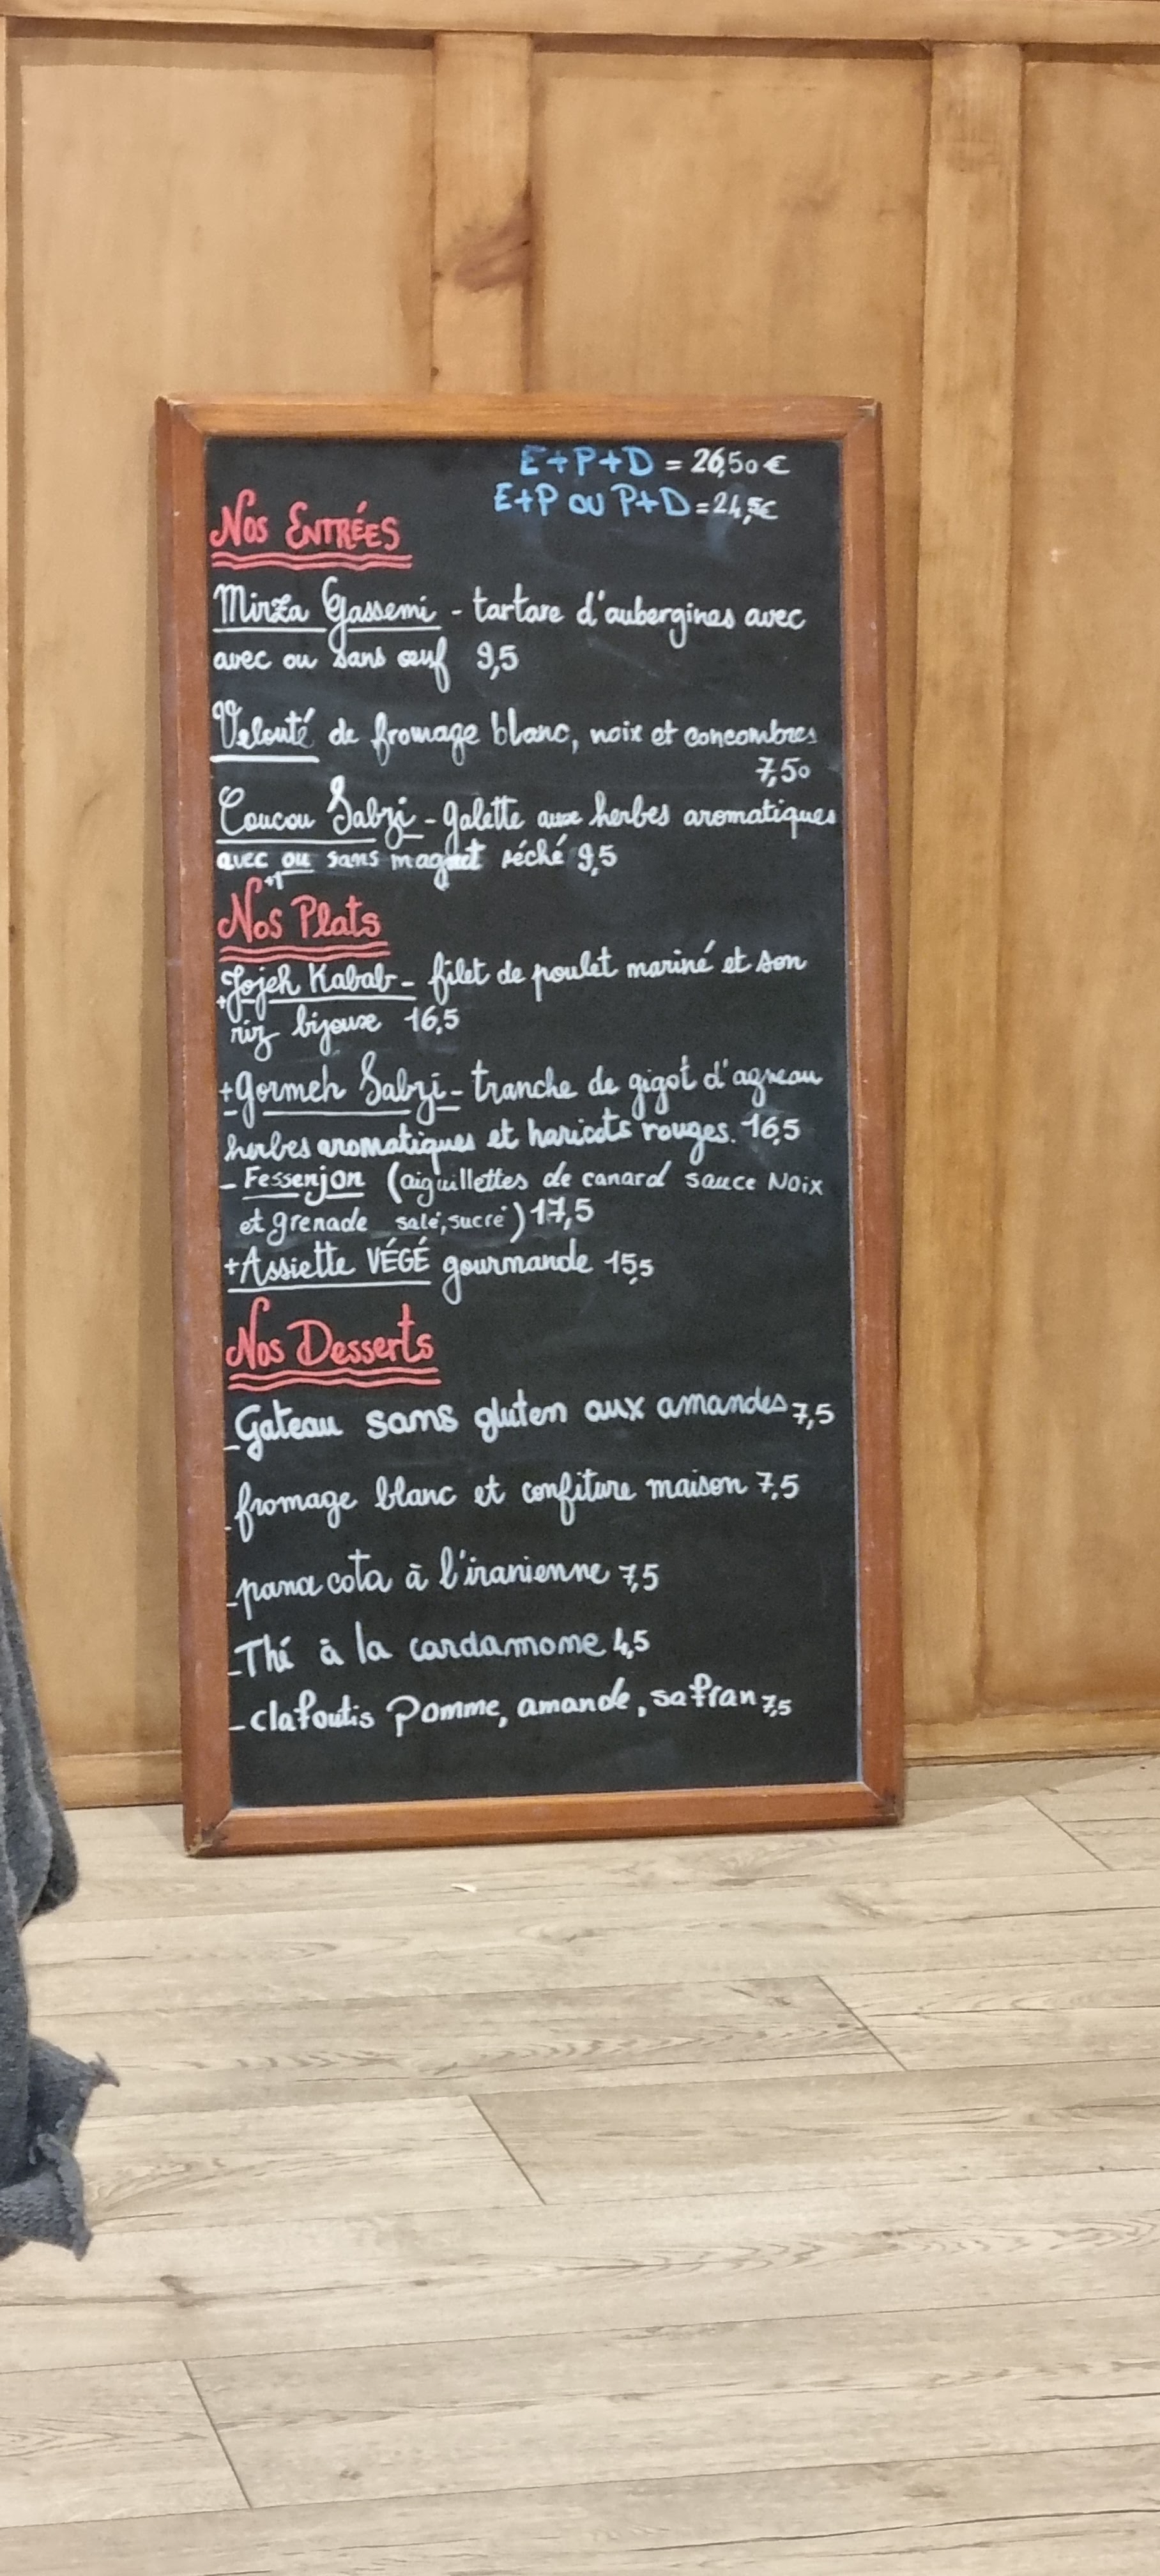 E+P+D = 26,50 €
E+P OU P+D = 24,5€
Nos ENTRÉES
Mirza Gassemi - tartare d'aubergines avec
avec ou sans œuf 9,5
Velouté de fromage blanc, noix et concombres
7,50
Coucou Sabzi - galette aux herbes aromatiques
avec ou sans magret séché 9,5
+1
Nos Plats
+Jojeh Kabab - filet de poulet mariné et son
riz bijoux 16,5
+Gormeh Sabzi - tranche de gigot d'agneau
herbes aromatiques et haricots rouges. 16,5
- Fessenjon (aiguillettes de canard sauce Noix
et grenade salé, sucré) 17,5
+Assiette VÉGÉ gourmande 15,5
Nos Desserts
- Gateau sans gluten aux amandes 7,5
- fromage blanc et confiture maison 7,5
- pana cota à l'iranienne 7,5
- Thé à la cardamome 4,5
- clafoutis Pomme, amande, safran 7,5